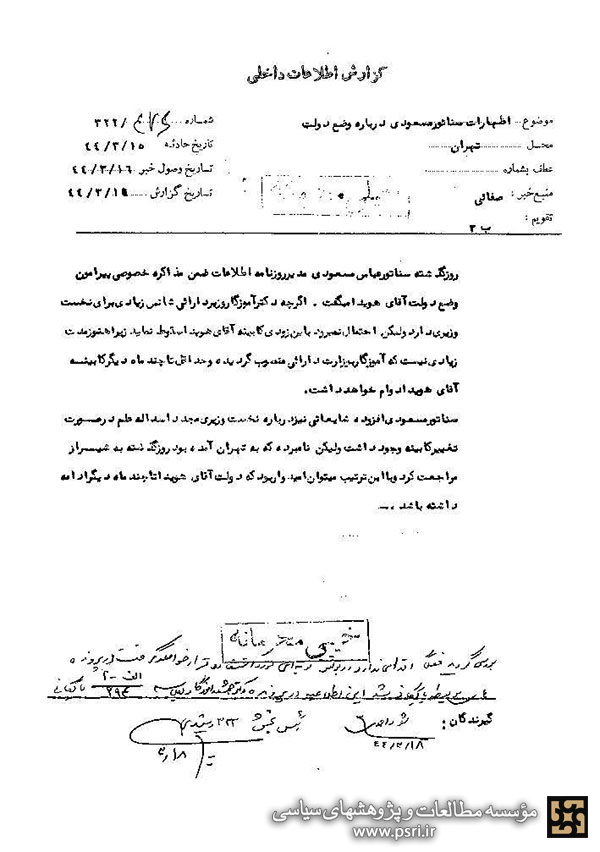 گزارش اطلاعات داخلی
موضوع : اظهارات سناتور مسعودی درباره وضع دولت
محل تهران
عطف بشماره
منبع خبر : صفائی
تقویم : ب ۲
شماره /۳۲۲
تاریخ حادثه ۴۴/۳/۱۵
تاریخ وصول خبر ۴۴/۳/۱۶
تاریخ گزارش ۴۴/۳/۱۸
روزگذشته سناتور عباس مسعودی مدیر روزنامه اطلاعات ضمن مذاکره خصوصی پیرامون
وضع دولت آقای هویدا میگفت . اگرچه دکتر آموزگار وزیر دارائی شانس زیادی برای نخست
وزیری دارد ولیکن احتمال نمیرود باین زودی کابینه آقای هویدا سقوط نماید زیرا هنوز مدت
زیادی نیست که آموزگار بوزارت دارائی منصوب گردیده و حداقل تا چند ماه دیگر کابینه
آقای هویدا دوام خواهد داشت.
سناتور مسعودی افزود شایعاتی نیز درباره نخست وزیری مجدد اسداله علم در صورت
تغییر کابینه وجود داشت ولیکن نامبرده که به تهران آمده بود روزگذشته به شیراز
مراجعت کرد و با این ترتیب میتوان امیدوار بود که دولت آقای هویدا تا چند ماه دیگر ادامه
داشته باشد .
خیلی محرمانه
گیرندگان :
۴۴/۳/۱۸
۳/۱۸
مؤسسه مطالعات و پژوهشهای سیاسی
www.psri.ir